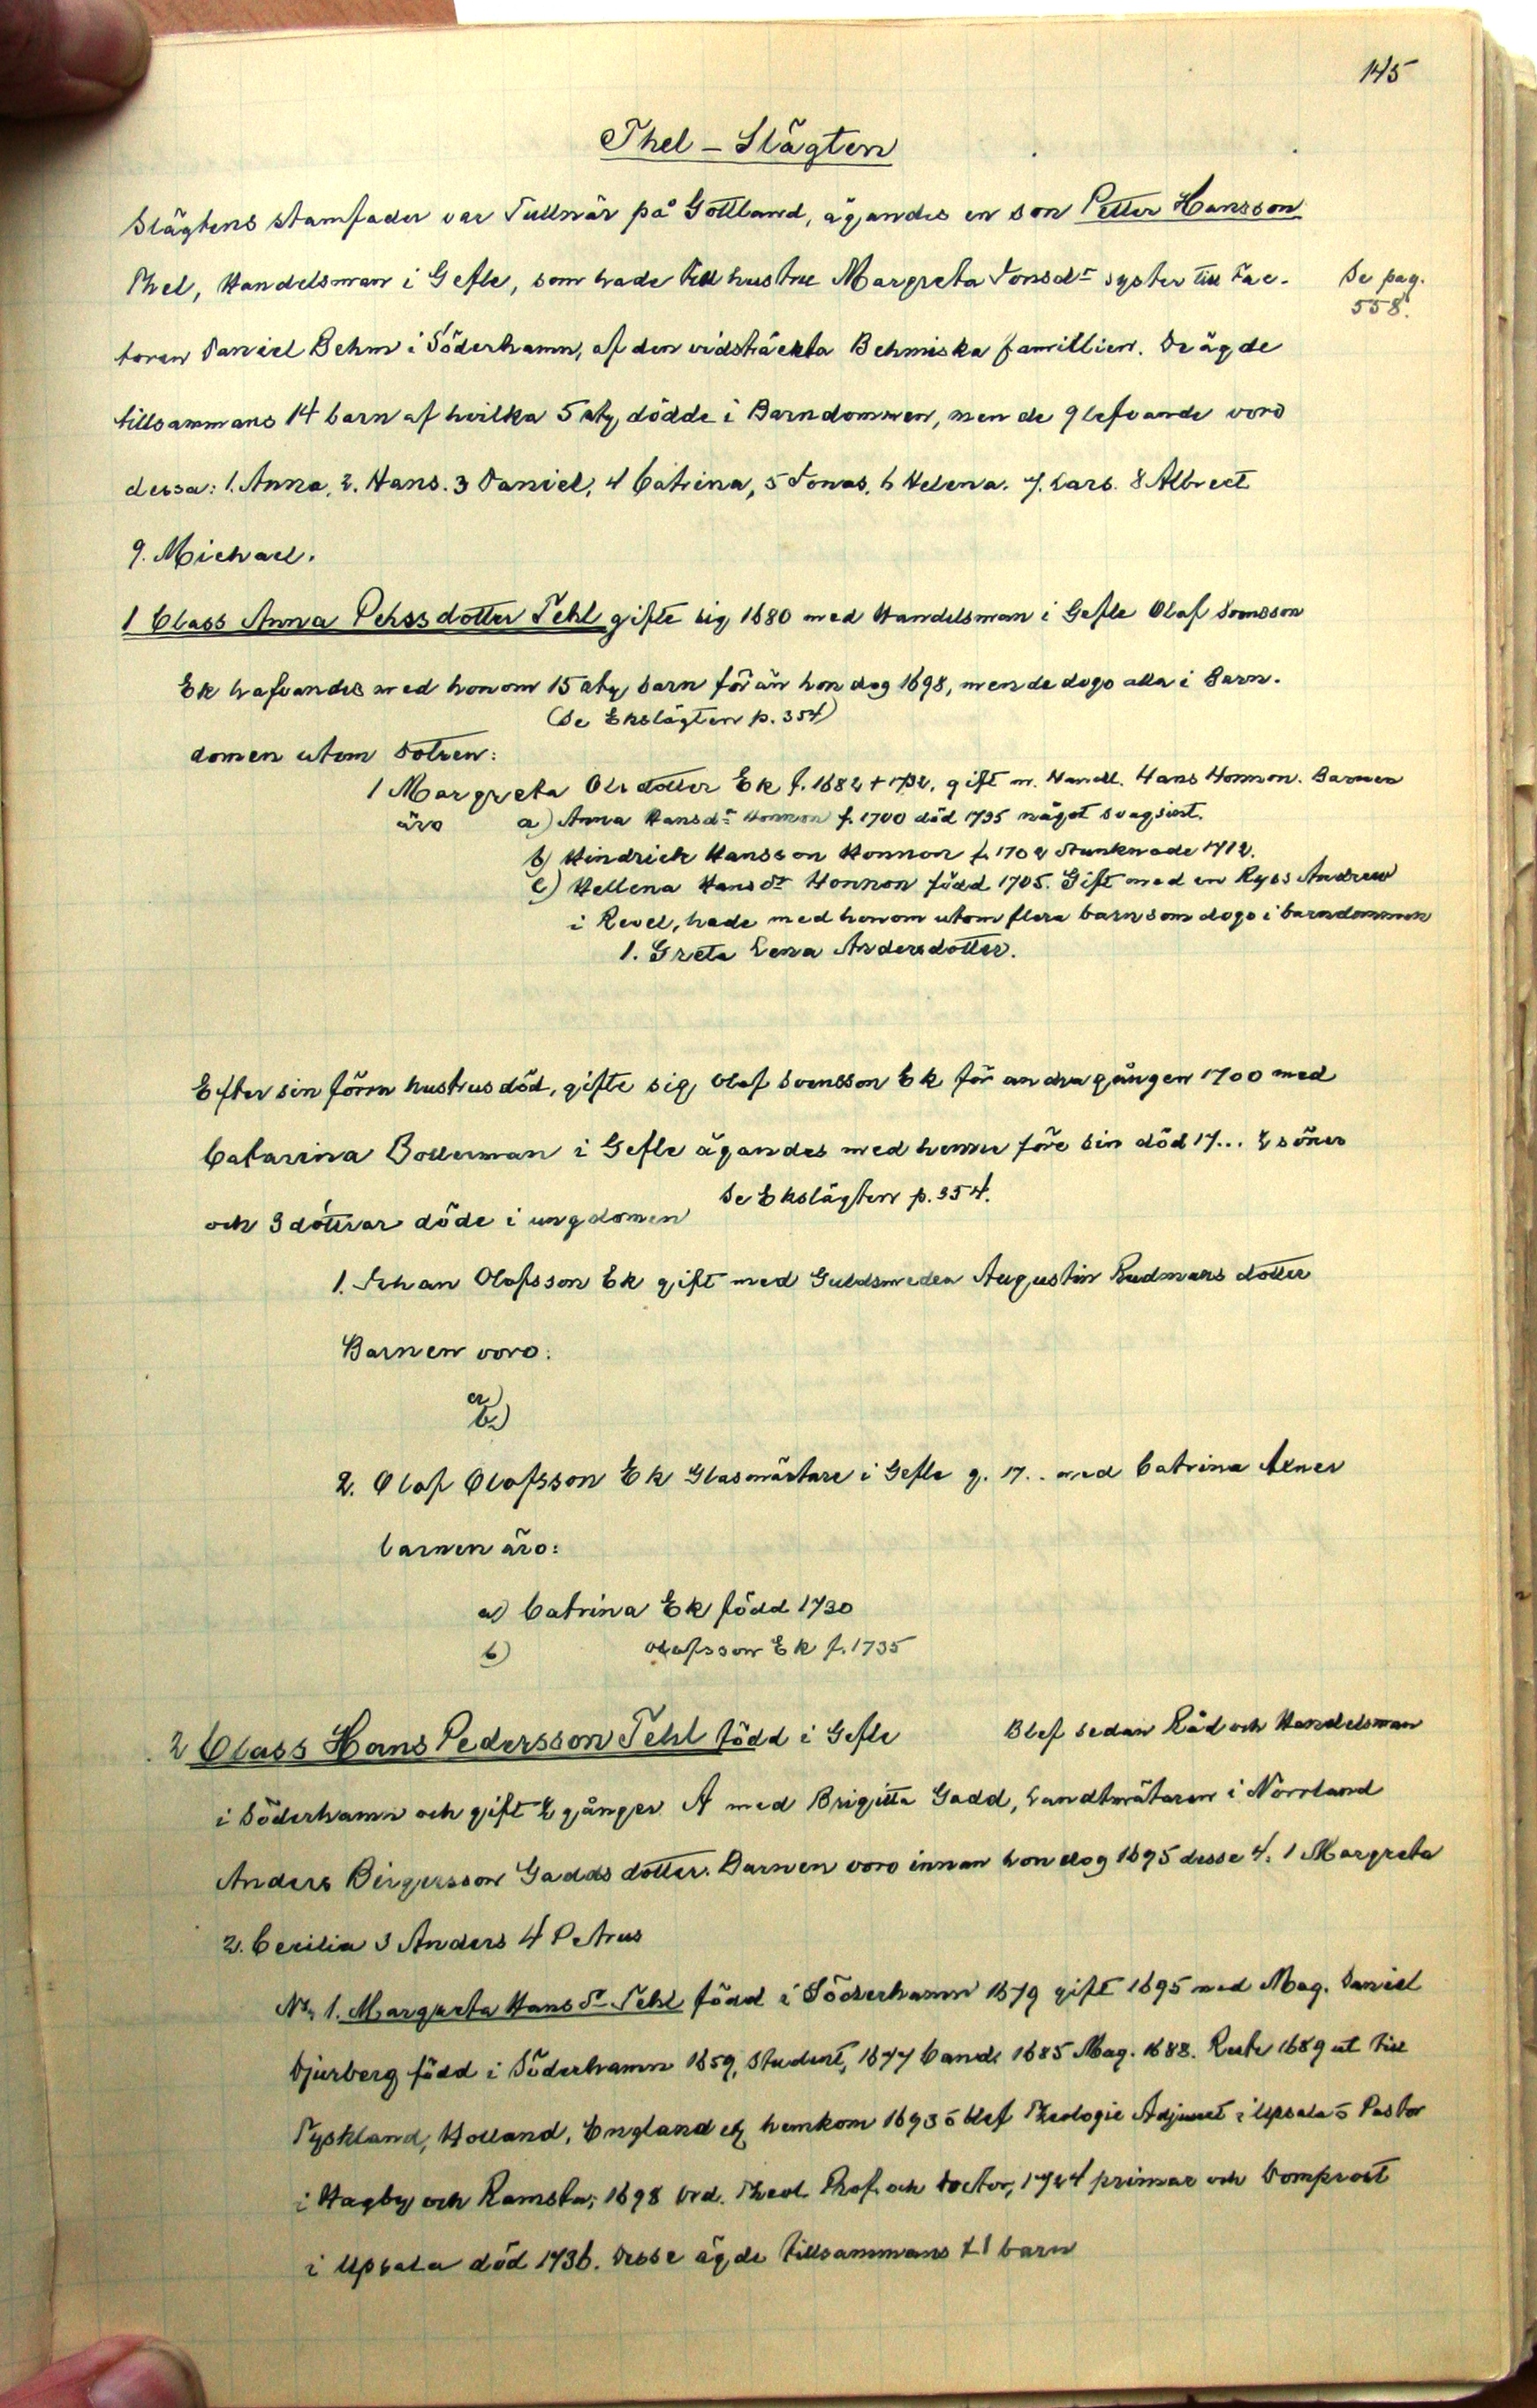 145
Thel – Slägten
Slägtens stamfader var Tullnär på Gottland, ägandes en son Petter Hansson
Thel, Handelsman i Gefle, som hade till hustru Margreta Jonsdr syster till Fac-
Se pag.
558.
toren Daniel Behm i Söderhamn, af den vidsträckta Behmiska famillien. De ägde
tillsammans 14 barn af hvilka 5 st dödde i Barndommen, men de 9 lefvande voro
dessa: 1. Anna, 2. Hans. 3 Daniel, 4 Catrina, 5 Jonas, 6 Helena. 7. Lars. 8 Albrect
9. Michael.
1 Class Anna Pehrsdotter Tehl gifte sig 1680 med Handelsman i Gefle Olof Svensson
Ek hafvandes med honom 15 st barn förän hon dog 1698, men de dogo alla i Barn-
(Se Ekslägten p. 354)
domen utom Dotren:
1 Margreta Olsdotter Ek f. 1682 + 1732, gift m. Handl. Hans Honnon. Barnen
äro a) Anna Hansdr Honnon f. 1700 död 1735 något svagsint.
b) Hindrich Hansson Honnon f. 1702 drunknade 1712.
c) Hellena Hansdr Honnon född 1705. Gift med en Ryss Andreu
i Revel, hade med honom utom flera barn som dogo i barndommen
1. Greta Lena Andersdotter.
Efter sin förra hustrus död, gifte sig Olof Svensson Ek för andra gången 1700 med
Catarina Bollerman i Gefle ägandes med henne före sin död 17... 2 söner
Se Ekslägten p. 354.
och 3 döttrar döde i ungdomen
1. Johan Olofsson Ek gift med Guldsmeden Augustin Budmans dotter
Barnen voro:
a)
b)
2. Olof Olofsson Ek Glasmästare i Gefle g. 17.. med Catrina Aener
barnen äro:
a) Catrina Ek född 1730
b) Olofsson Ek f. 1735
2 Class Hans Pedersson Tehl född i Gefle Blef sedan Råd och Handelsman
i Söderhamn och gift 2 gånger A med Brigitta Gadd, Landtmätaren i Norrland
Anders Birgersson Gadds dotter. Barnen voro innan hon dog 1695 desse 4. 1 Margreta
2. Cecilia 3 Anders 4 Petrus
No 1. Margareta Hansdr Tehl född i Söderhamn 1679 gift 1695 med Mag. Daniel
Djurberg född i Söderhamn 1659, Student, 1677 Cand. 1685 Mag. 1688. Reste 1689 ut till
Tyskland, Holland, England etc hemkom 1693 o blef Theologie Adjunct i Upsala o Pastor
i Hagby och Ramsta, 1698 Ord. Theol. Prof. och Doctor, 1724 primar och Domprost
i Upsala död 1736. Desse ägde tillsammans 11 barn